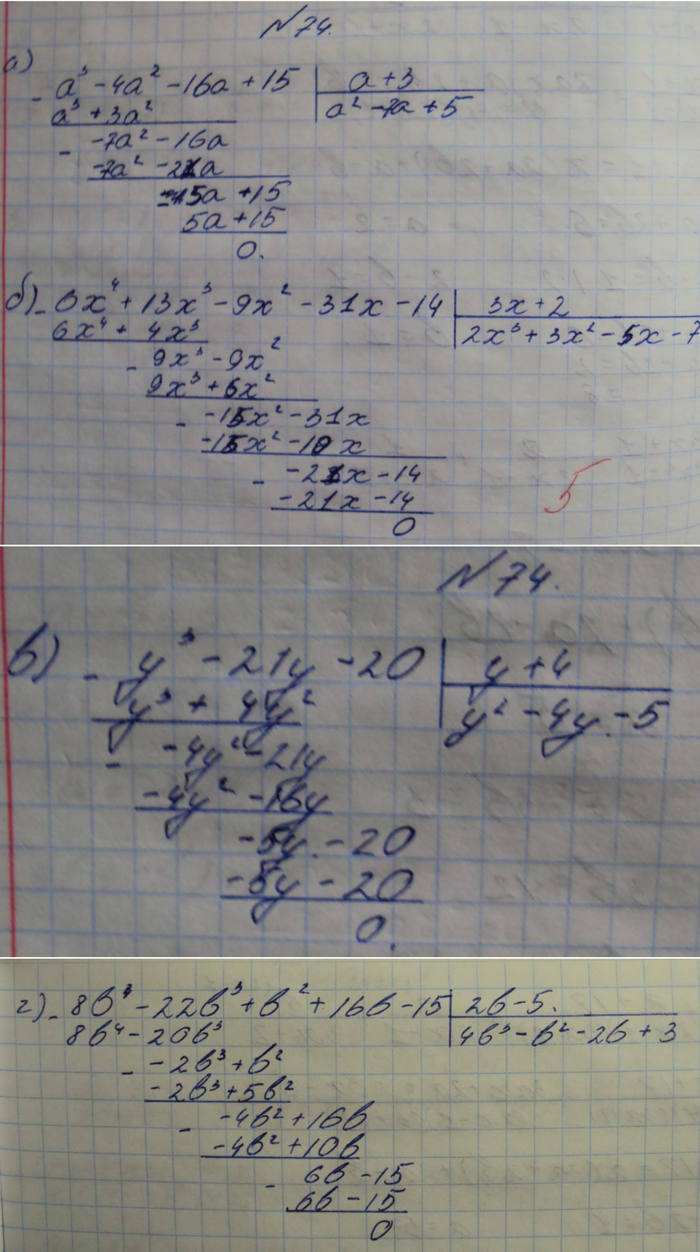 №74.
а)
- a³ - 4a² - 16a + 15 | a + 3
a³ + 3a² | a² - 7a + 5
- -7a² - 16a
-7a² - 21a
5a + 15
5a + 15
0.
б) - 6x⁴ + 13x³ - 9x² - 31x - 14 | 3x + 2
6x⁴ + 4x³ | 2x³ + 3x² - 5x - 7
- 9x³ - 9x²
9x³ + 6x²
- -15x² - 31x
-15x² - 10x
- -21x - 14
-21x - 14
0
5
№74.
в) - y³ - 21y - 20 | y + 4
y³ + 4y² | y² - 4y - 5
- -4y² - 21y
-4y² - 16y
-5y - 20
-5y - 20
0.
г) - 8b⁴ - 22b³ + b² + 16b - 15 | 2b - 5.
8b⁴ - 20b³ | 4b³ - b² - 2b + 3
- -2b³ + b²
-2b³ + 5b²
- -4b² + 16b
-4b² + 10b
- 6b - 15
6b - 15
0